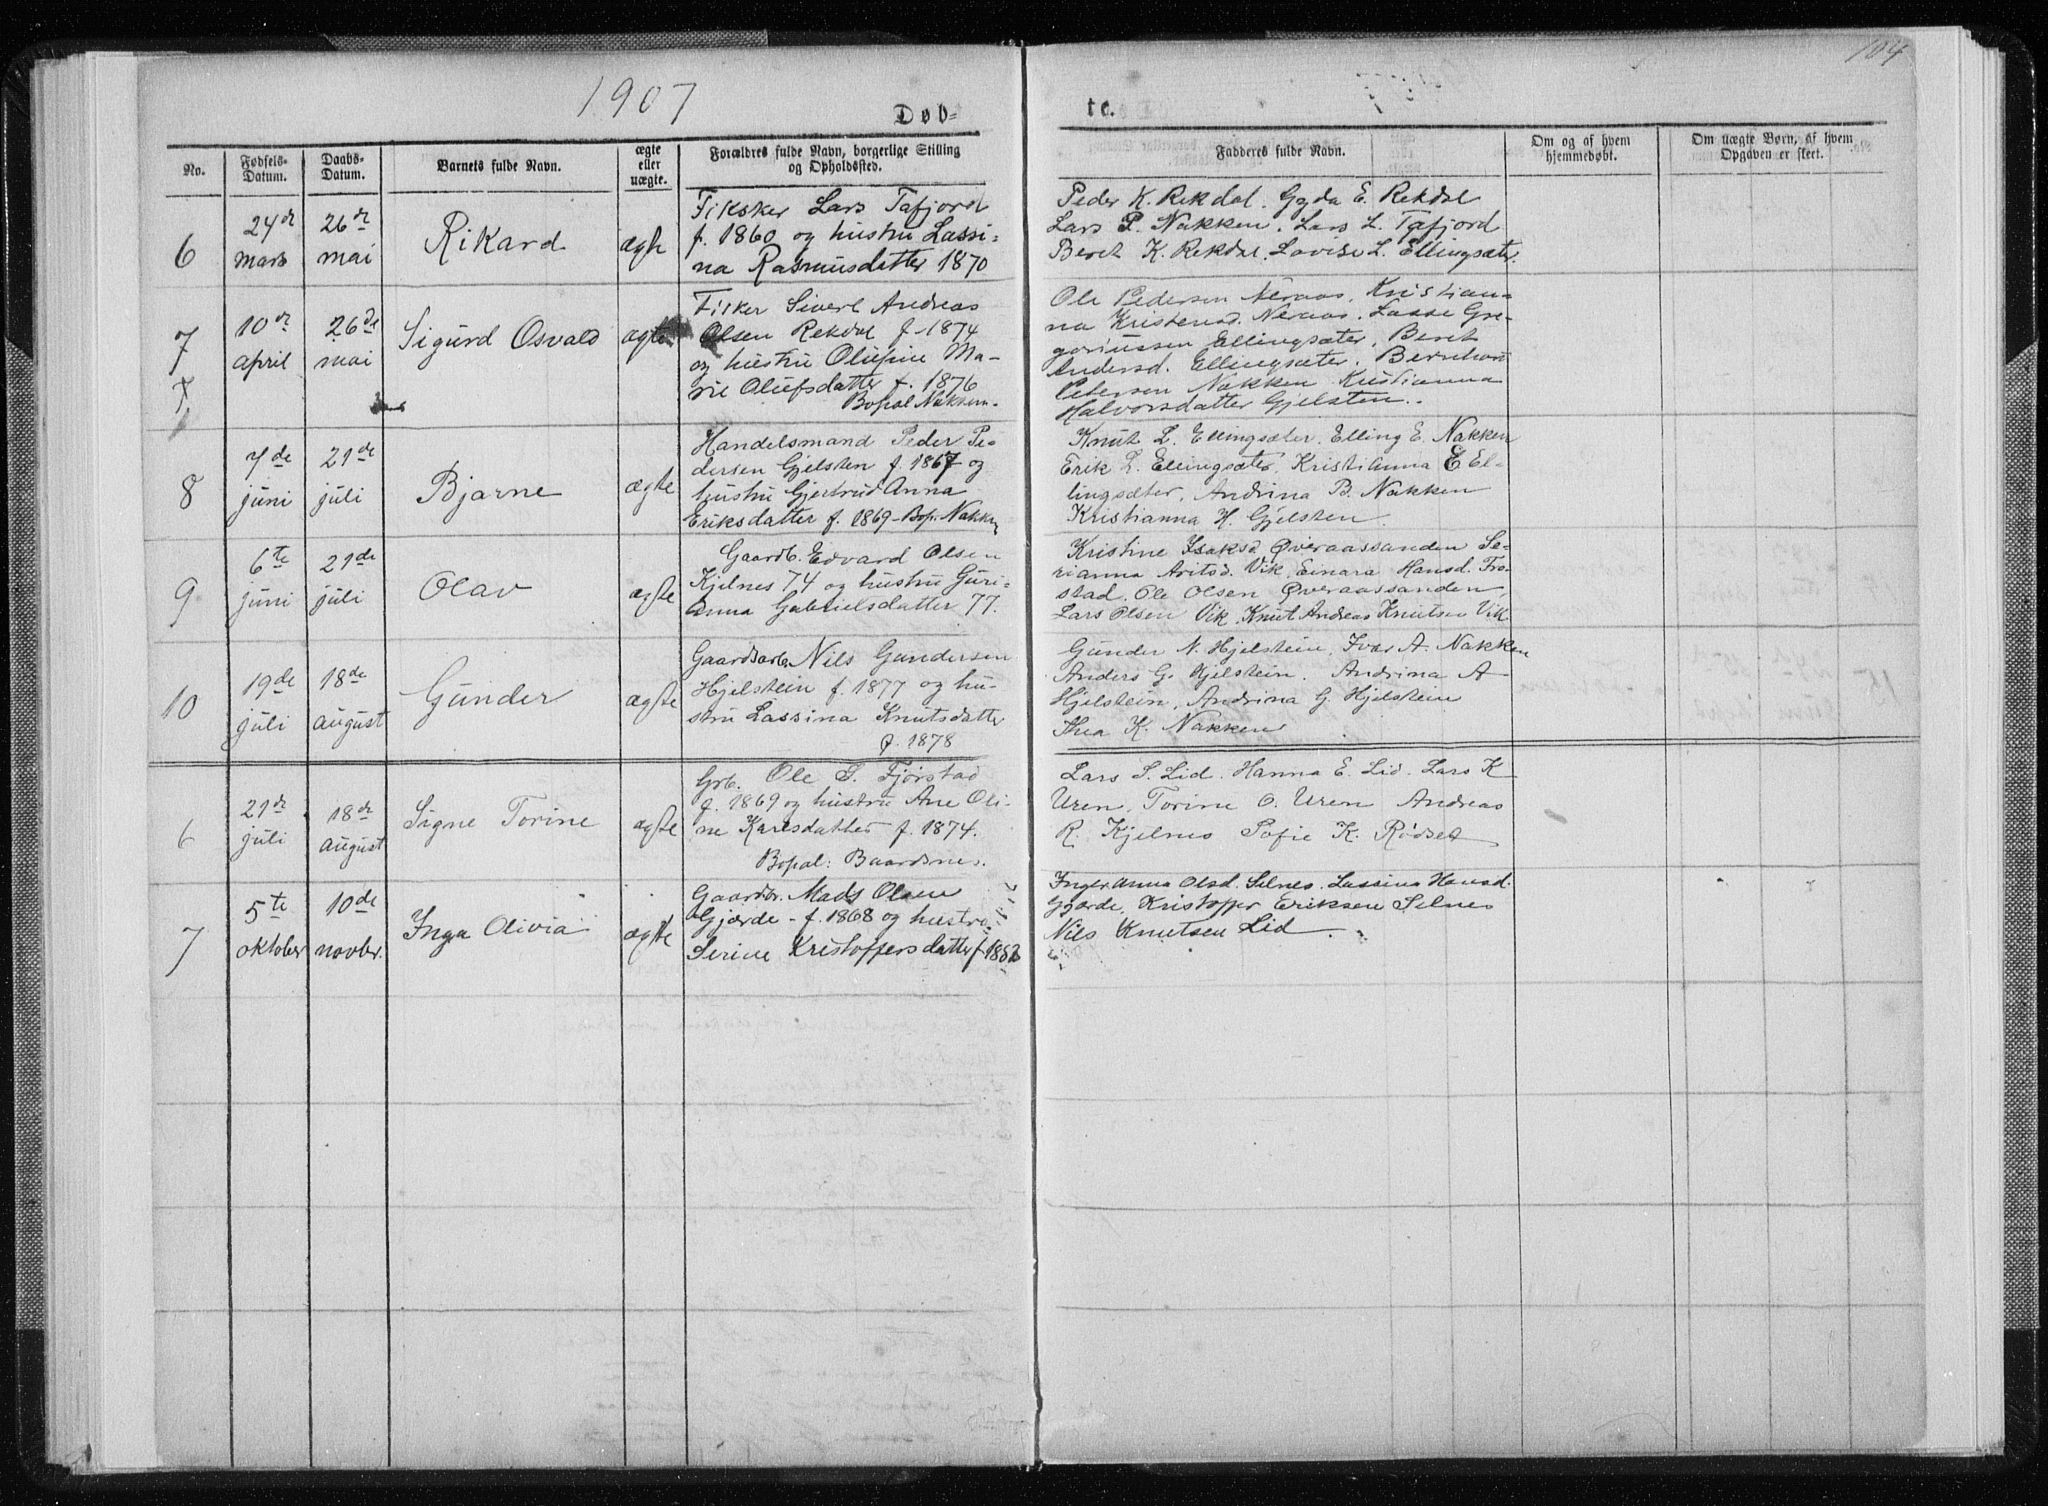 104
1907
Døb-
te.
No.
Fødsels-Datum.
Daabs-Datum.
Barnets fulde Navn.
ægte eller uægte.
Forældres fulde Navn, borgerlige Stilling og Opholdssted.
Fadderes fulde Navn.
Om og af hvem hjemmedøbt.
Om uægte Børn, af hvem Opgaven er skeet.
6
24de mars
26de mai
Rikard
ægte
Fiksker Lars Tafjord
f. 1860 og hustru Lassi-
na Rasmusdatter 1870
Peder K. Rekdal. Gyda E. Rekdal
Lars P. Nakken. Lars L. Tafjord
Beret K. Rekdal. Lovise L. Ellingsæter.
7
10de april
26de mai
Sigurd Osvald
ægte
Fisker Sivert Andreas
Olsen Rekdal f. 1874
og hustru Olufine Ma-
rie Olufsdatter f. 1876
Bopæl Nakken.
Ole Pedersen Neraas. Kristian-
na Kristensd. Neraas. Lasse Gre-
goriussen Ellingsæter. Beret
Andersd. Ellingsæter. Berntson
Petersen Nakken Kristianna
Halvorsdatter Gjelsten.
8
7de juni
21de juli
Bjarne
ægte
Handelsmand Peder Pe-
dersen Gjelsten f. 1867 og
hustru Gjertrud Anna
Eriksdatter f. 1869 - Bop. Nakken
Knut L. Ellingsæter. Elling E. Nakken
Erik L. Ellingsæter, Kristianna E El-
lingsæter, Andrina B. Nakken
Kristianna H. Gjelsten.
9
6te juni
21de juli
Olav
ægte
Gaardb. Edvard Olsen
Kjelnes 74 og hustru Guri-
anna Gabrielsdatter 77.
Kristine Isaksd Øveraassanden Se-
rianna Avitsd. Vik, Einara Hansd. Fro-
stad. Ole Olsen Øveraassanden,
Lars Olsen Vik. Knut Andreas Knutsen Vik
10
19de juli
18de august
Gunder
ægte
Gaardsarb. Nils Gundersen
Hjelstein f. 1877 og hu-
stru Lassina Knutsdatter
f. 1878
Gunder N. Hjelstein, Ivar A. Nakken
Anders G. Hjelstein. Andrina A
Hjelstein, Andrina G. Hjelstein
Thea K. Nakken
6
21de juli
18de august
Signe Torine
ægte
Grb. Ole S. Fjørstad
f. 1869 og hustru Ane Oli-
ne Karlsdatter f. 1874.
Bopæl: Baardsnes.
Lars S. Lid. Hanna E. Lid. Lars K
Uren, Torine O. Uren Andreas
R. Kjelnes Sofie K. Rødset
7
5te oktober
10de novbr.
Inga Olivia
ægte
Gaardbr. Mads Olsen
Gjærde - f. 1868 og hustru
Serine Kristoffersdatter f 1882
Ingeranna Olsd. Selnes. Lassina Hansd.
Gjærde, Kristoffer Eriksen Selnes
Nils Knutsen Lid.